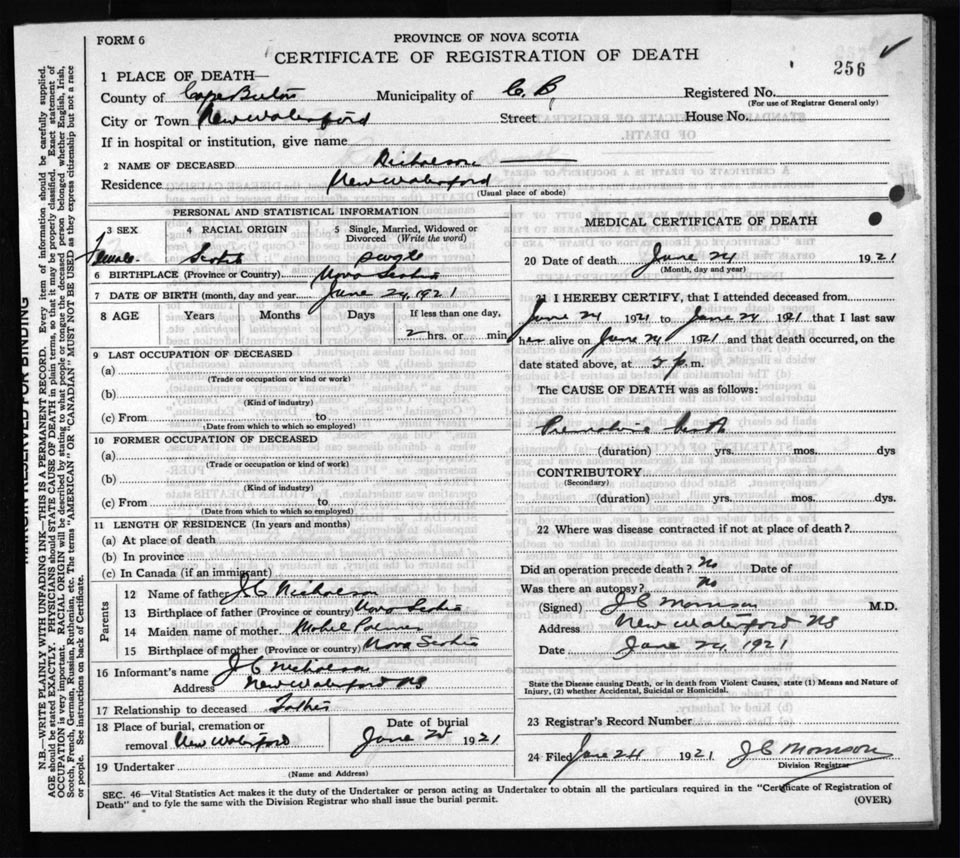 FORM 6
PROVINCE OF NOVA SCOTIA
CERTIFICATE OF REGISTRATION OF DEATH
256
1 PLACE OF DEATH—
County of Cape Breton Municipality of C. B. Registered No.
(For use of Registrar General only)
City or Town New Waterford Street House No.
If in hospital or institution, give name
2 NAME OF DECEASED Nicholson
Residence New Waterford
(Usual place of abode)
PERSONAL AND STATISTICAL INFORMATION
3 SEX 4 RACIAL ORIGIN 5 Single, Married, Widowed or Divorced (Write the word)
Female Scotch Single
6 BIRTHPLACE (Province or Country) Nova Scotia
7 DATE OF BIRTH (month, day and year) June 24, 1921
8 AGE Years Months Days If less than one day,
2 hrs. or min
9 LAST OCCUPATION OF DECEASED
(a)
(Trade or occupation or kind or work)
(b)
(Kind of industry)
(c) From to
(Date from which to which so employed)
10 FORMER OCCUPATION OF DECEASED
(a)
(Trade or occupation or kind of work)
(b)
(Kind of industry)
(c) From to
(Dates from which to which so employed)
11 LENGTH OF RESIDENCE (In years and months)
(a) At place of death
(b) In province
(c) In Canada (if an immigrant)
Parents
12 Name of father J C Nicholson
13 Birthplace of father (Province or country) Nova Scotia
14 Maiden name of mother
15 Birthplace of mother (Province or country) Nova Scotia
16 Informant's name J C Nicholson
Address New Waterford NS
17 Relationship to deceased Father
18 Place of burial, cremation or Date of burial
removal New Waterford June 1921
19 Undertaker
(Name and Address)
MEDICAL CERTIFICATE OF DEATH
20 Date of death June 24 1921
(Month, day and year)
21 I HEREBY CERTIFY, that I attended deceased from
June 24 1921 to June 24 1921 that I last saw
her alive on June 24 1921 and that death occurred, on the
date stated above, at 5 p. m.
The CAUSE OF DEATH was as follows:
Premature birth
(duration) yrs. mos. dys
CONTRIBUTORY
(Secondary)
(duration) yrs. mos. dys.
22 Where was disease contracted if not at place of death?
Did an operation precede death? No Date of
Was there an autopsy? No
(Signed) J C Morrison M.D.
Address New Waterford NS
Date June 24, 1921
State the Disease causing Death, or in death from Violent Causes, state (1) Means and Nature of
Injury, (2) whether Accidental, Suicidal or Homicidal.
23 Registrar's Record Number
24 Filed June 24 1921 J C Morrison
Division Registrar
SEC. 46—Vital Statistics Act makes it the duty of the Undertaker or person acting as Undertaker to obtain all the particulars required in the "Certificate of Registration of
Death" and to fyle the same with the Division Registrar who shall issue the burial permit.
(OVER)
MARGIN RESERVED FOR BINDING
N.B.—WRITE PLAINLY WITH UNFADING INK—THIS IS A PERMANENT RECORD. Every item of information should be carefully supplied.
AGE should be stated EXACTLY. PHYSICIANS should STATE CAUSE OF DEATH in plain terms, so that it may be properly classified. Exact statement of
OCCUPATION is very important. RACIAL ORIGIN will be described by stating to what people or tongue the deceased person belonged whether English, Irish,
Scotch, French, German, Russian, Ruthenian, etc. The terms "AMERICAN" OR "CANADIAN" MUST NOT BE USED as they express citizenship but not a race
or people. See instructions on back of Certificate.